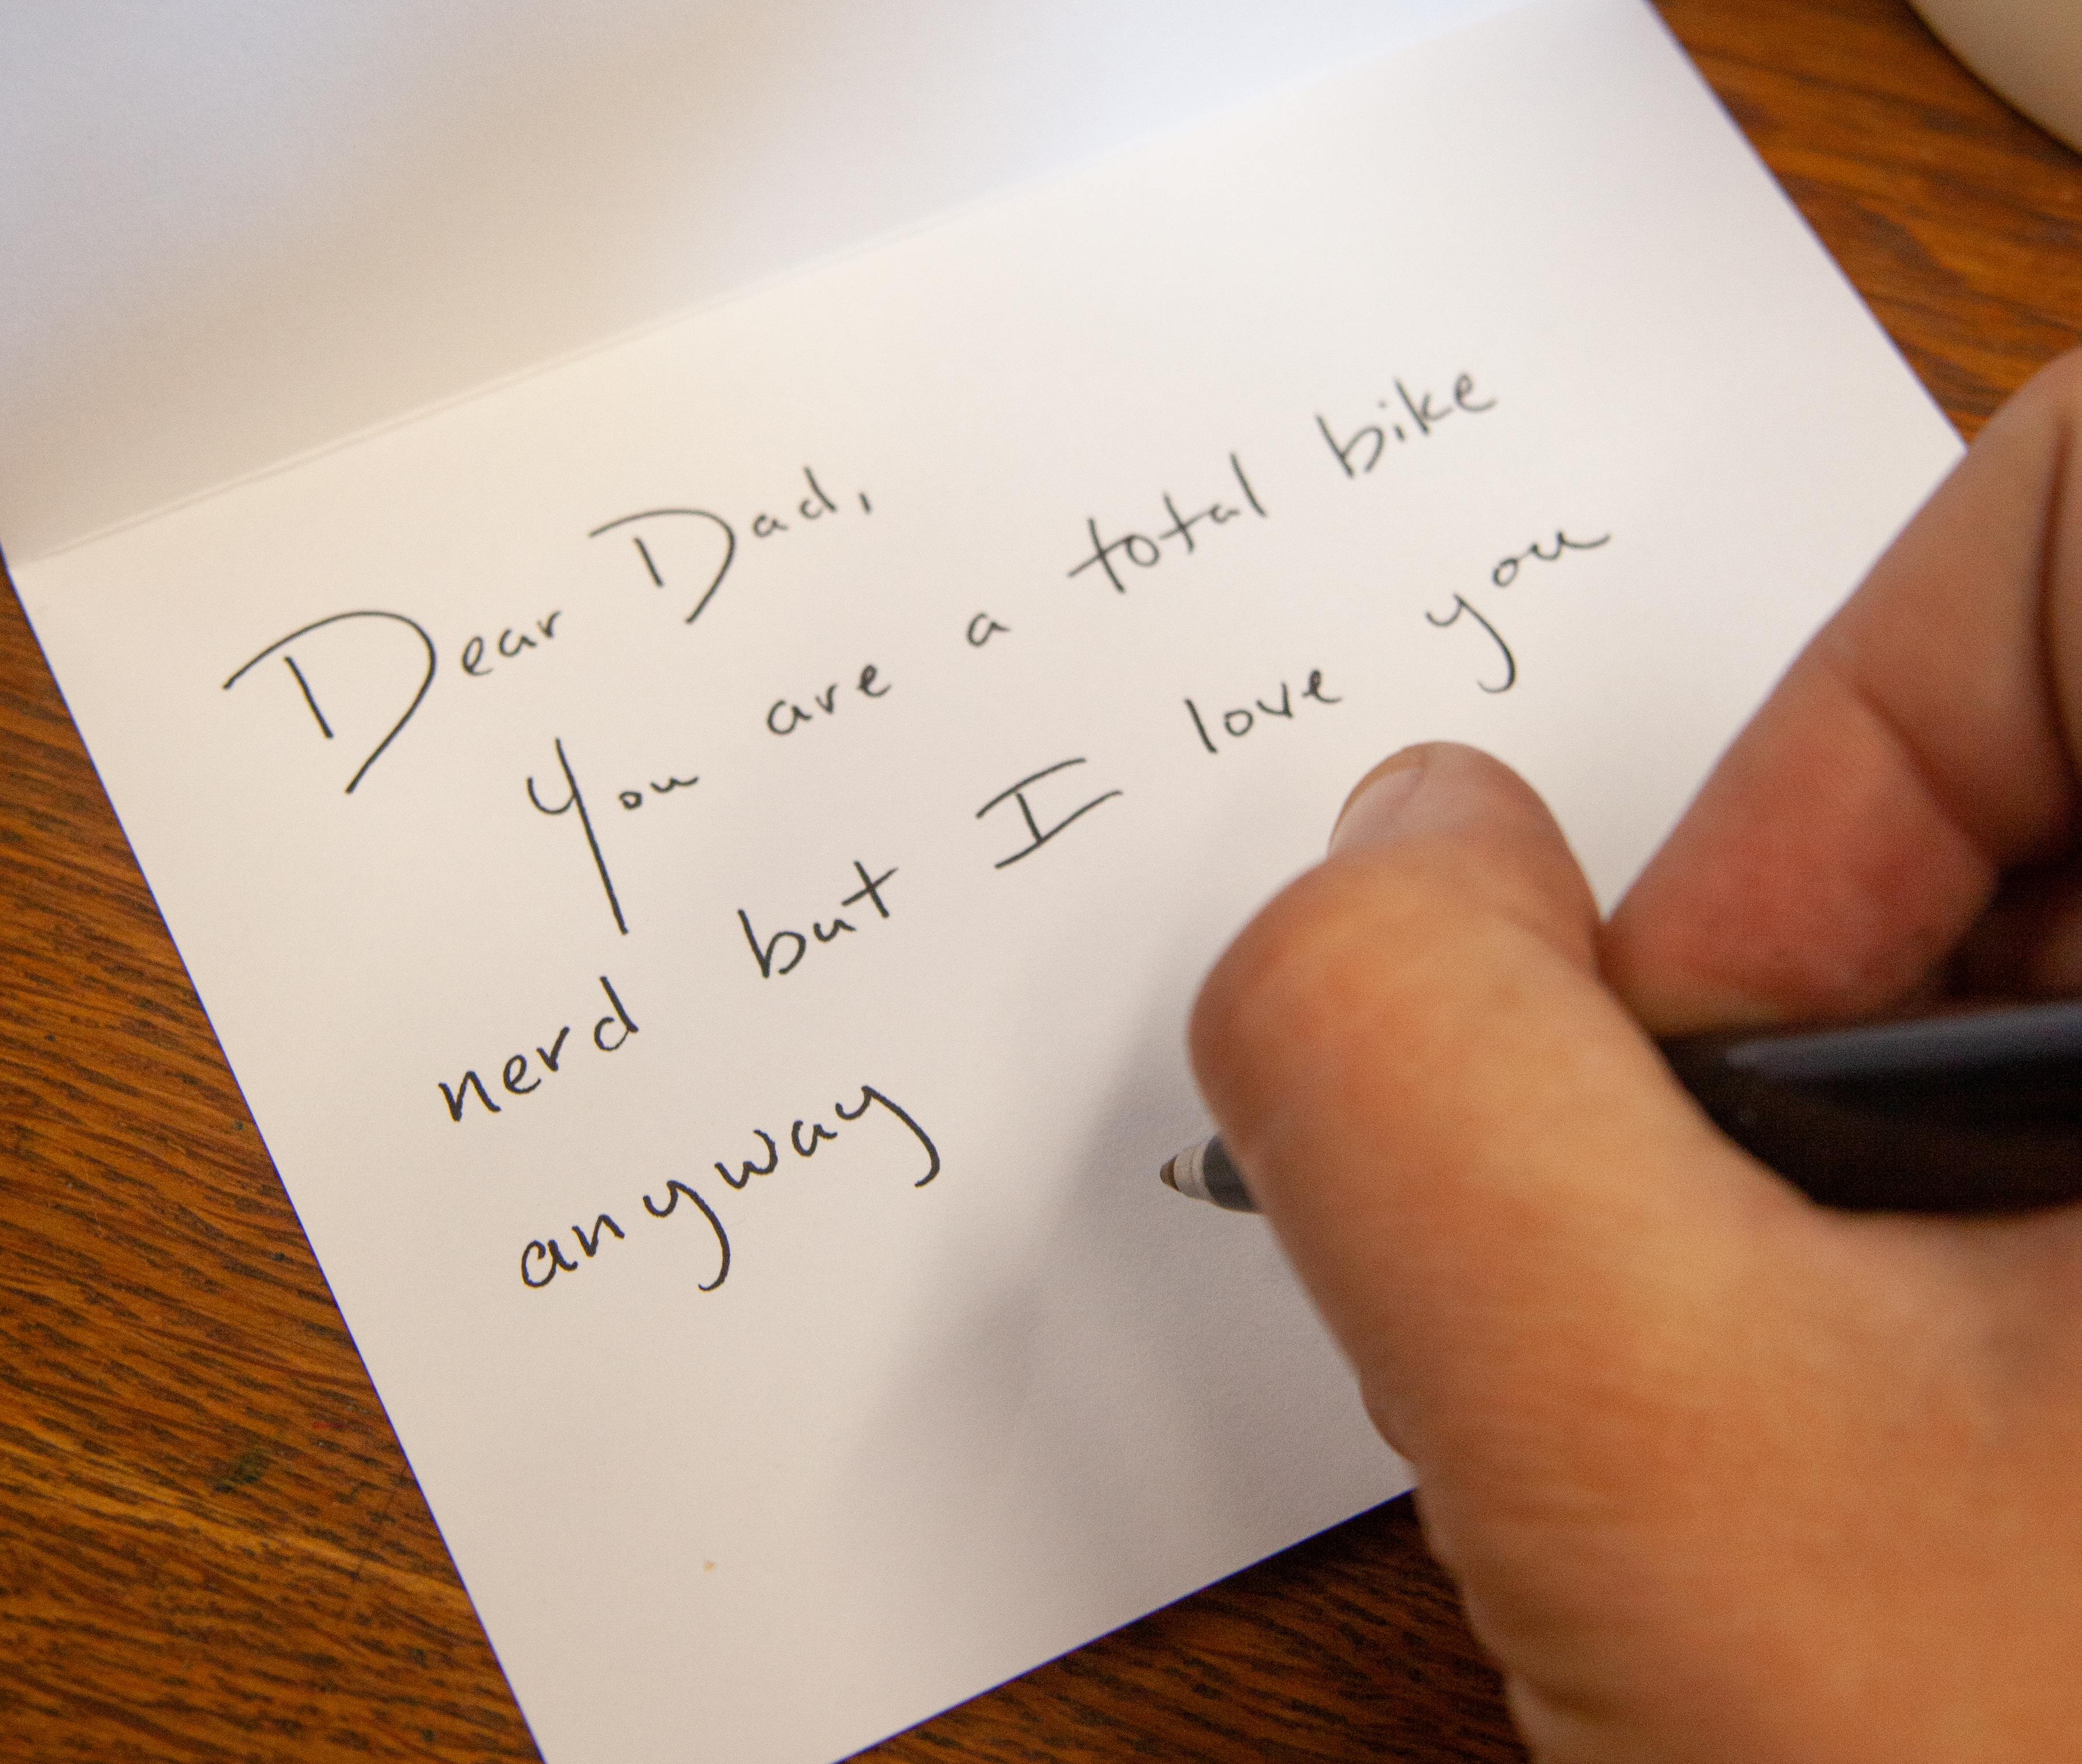 Dear Dad,
You are a total bike
nerd but I love you
anyway